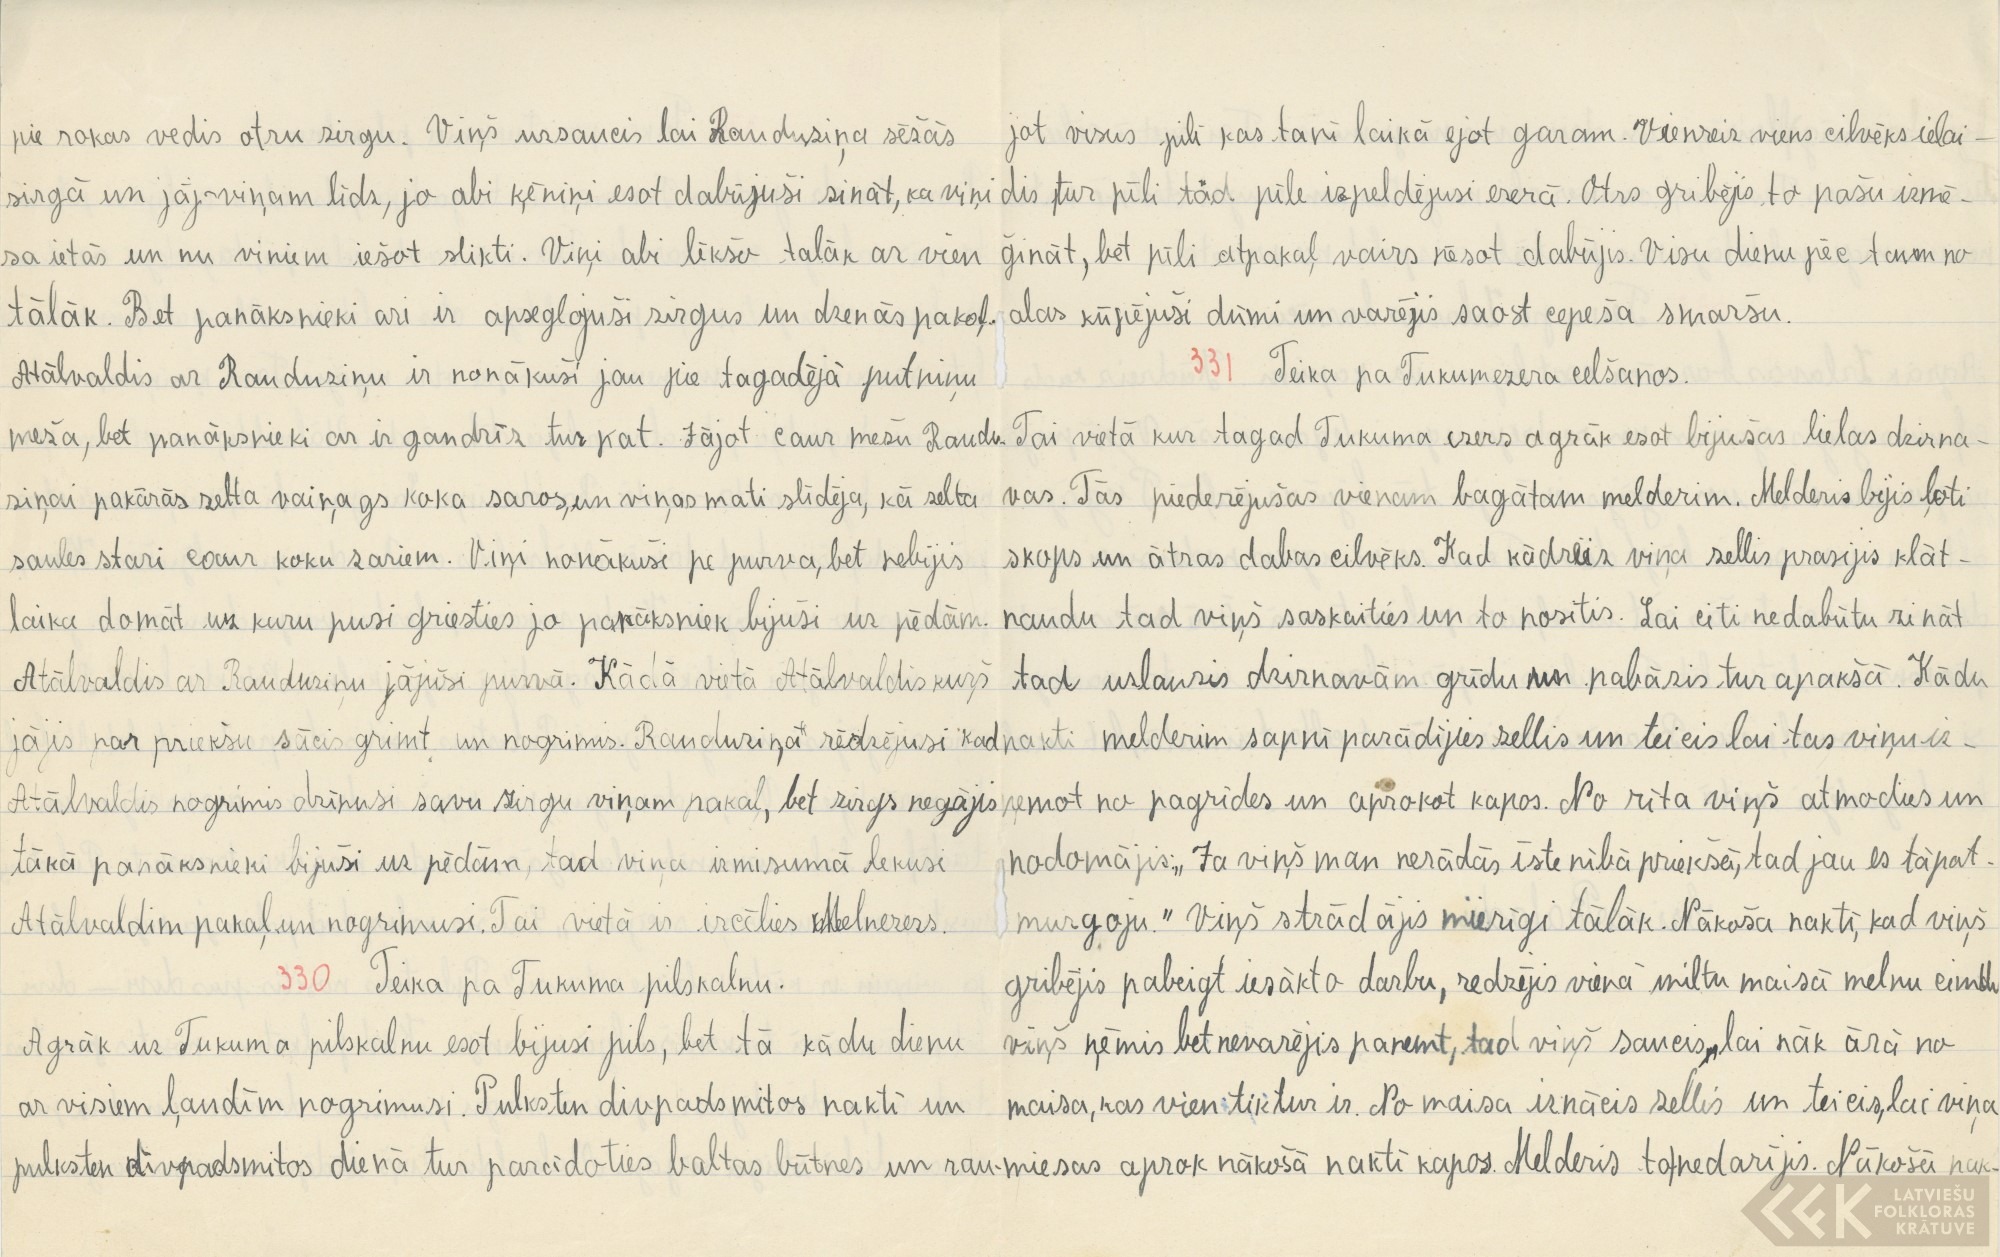 pie rokas vedis otru zirgu. Viņš uzsaucis lai Rauduziņa sēžās
zirgā un jāj viņam līdz, jo abi ķēniņi esot dabūjuši zināt, ka viņi
sa ietās un nu viniem iešot slikti. Viņi abi lēkšo talāk ar vien
tālāk. Bet panāksnieki ari ir apseglojuši zirgus un dzenās pakaļ.
Atālvaldis ar Rauduziņu ir nonākuši jau pie tagadējā putniņu
meža, bet panāksnieki ar ir gandrīz tur pat. Jājot caur mežu Raudu-
ziņai pakārās zelta vaiņags koka zaros, un viņas mati slīdēja, kā zelta
saules stari caur koku zariem. Viņi nonākuši pe purva, bet nebijis
laika domāt uz kuru pusi griesties jo panāksniek bijuši uz pēdām.
Atālvaldis ar Rauduziņu jājuši purvā. Kādā vietā Atālvaldis kuŗš
jājis par priekšu sācis grimt un nogrimis. Rauduziņa rēdzējusi kad
Atālvaldis nogrimis dzinusi savu zirgu viņam pakaļ, bet zirgs negājis
tākā panāksnieki bijuši uz pēdām, tad viņa izmisumā lekusi
Atālvaldim pakaļ un nogrimusi. Tai vietā ir izcēlies Melnezers.
330 Teika pa Tukuma pilskalnu.
Agrāk uz Tukuma pilskalnu esot bijusi pils, bet tā kādu dienu
ar visiem ļaudīm nogrimusi. Pulksten divpadsmitos naktī un
pulksten divpadsmitos dienā tur parādoties baltas būtnes un rau-
jot visus pilī kas tanī laikā ejot garam. Vienreiz viens cilvēks ielai-
dis tur pīli tād pīle izpeldējusi ezerā. Otrs gribējis to pašu izmē-
ģināt, bet pīli atpakaļ vairs nēsot dabūjis. Visu dienu pēc tam no
alas kūpējuši dūmi un varējis saost cepeša smaršu.
331 Teika pa Tukumezera celšanos.
Tai vietā kur tagad Tukuma ezers agrāk esot bijušas lielas dzirna-
vas. Tās piederējušas vienam bagātam melderim. Melderis bijis ļoti
skops un ātras dabas cilvēks. Kad kādreiz viņa zellis prasijis klāt-
naudu tad viņš saskaities un to nositis. Lai citi nedabūtu zināt
tad uzlauzis dzirnavām grīdu un pabāzis tur apakšā. Kādu
nakti melderim sapnī parādijies zellis un teicis lai tas viņu iz-
ņemot no pagrīdes un aprokot kapos. No rīta viņš atmodies un
nodomājis: „Ja viņš man nerādās īstenībā priekšā, tad jau es tāpat
murgoju." Viņš strādājis mierīgi tālāk. Nākoša naktī, kad viņš
gribējis pabeigt iesākto darbu, redzējis vienā miltu maisā melnu cimdu
viņš ņēmis bet nevarējis paņemt, tad viņš saucis, lai nāk ārā no
maisa, kas vien tik tur ir. No maisa iznācis zellis un teicis, lai viņa
miesas aprok nākošā naktī kapos. Melderis to nedarījis. Nākošā nak-
LATVIEŠU
FOLKLORAS
KRĀTUVE